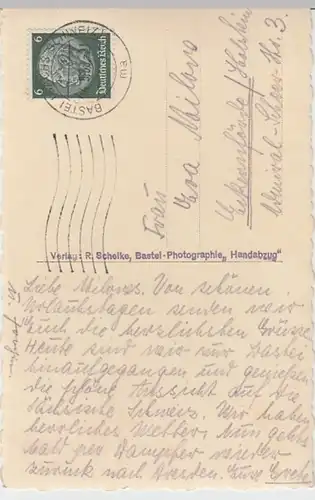 Deutsches Reich
6 6
BASTEI
Frau
Eva Milovz
Eckernförde/Holstein
Admiral-Scheer-Str. 3.
Verlag: R. Scheike, Bastei-Photographie „Handabzug"
Liebe Milovzs. Von schönen
Urlaubstagen senden wir
Euch die herzlichsten Grüsse
Heute sind wir zur Bastei
hinaufgegangen und geniessen
die schöne Aussicht auf die
sächsische Schweiz. Wir haben
herrliches Wetter. Nun geht's
bald per Dampfer wieder
zurück nach Dresden. Eure Grete